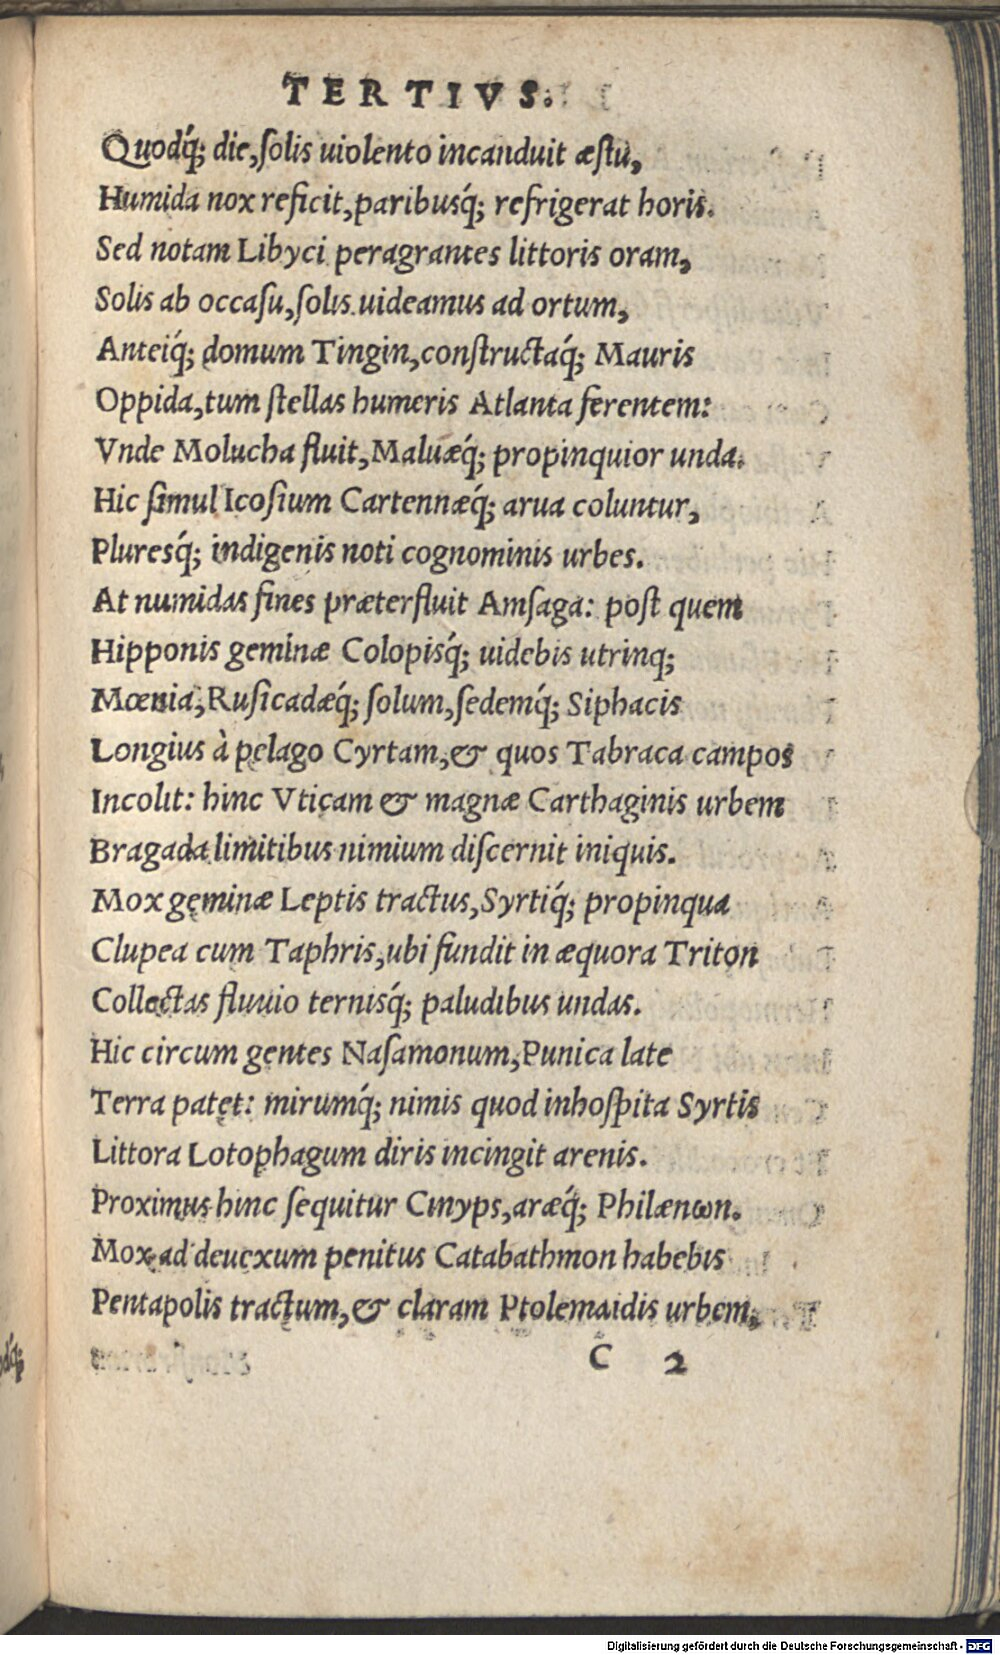 TERTIVS.
Quodq́; die, ſolis uiolento incanduit æſtu,
Humida nox reficit, paribusq́; refrigerat horis.
Sed notam Libyci peragrantes littoris oram,
Solis ab occaſu, ſolis uideamus ad ortum,
Anteiq́; domum Tingin, conſtructaq́; Mauris
Oppida, tum ſtellas humeris Atlanta ferentem:
Vnde Molucha fluit, Maluæq́; propinquior unda.
Hic ſimul Icoſium Cartennæq́; arua coluntur,
Pluresq́; indigenis noti cognominis urbes.
At numidas fines præterfluit Amſaga: post quem
Hipponis geminæ Colopisq́; uidebis utrinq;
Mœnia, Ruſicadæq́; ſolum, ſedemq́; Siphacis
Longius à pelago Cyrtam, & quos Tabraca campos
Incolit: hinc Vticam & magnæ Carthaginis urbem
Bragada limitibus nimium diſcernit iniquis.
Mox geminæ Leptis tractus, Syrtiq́; propinqua
Clupea cum Taphris, ubi fundit in æquora Triton
Collectas fluuio ternisq́; paludibus undas.
Hic circum gentes Naſamonum, Punica late
Terra patet: mirumq́; nimis quod inhoſpita Syrtis
Littora Lotophagum diris incingit arenis.
Proximus hinc ſequitur Cinyps, aræq́; Philænωn.
Mox ad deuexum penitus Catabathmon habebis
Pentapolis tractum, & claram Ptolemaidis urbem,
C 2
Digitalisierung gefördert durch die Deutsche Forschungsgemeinschaft - DFG